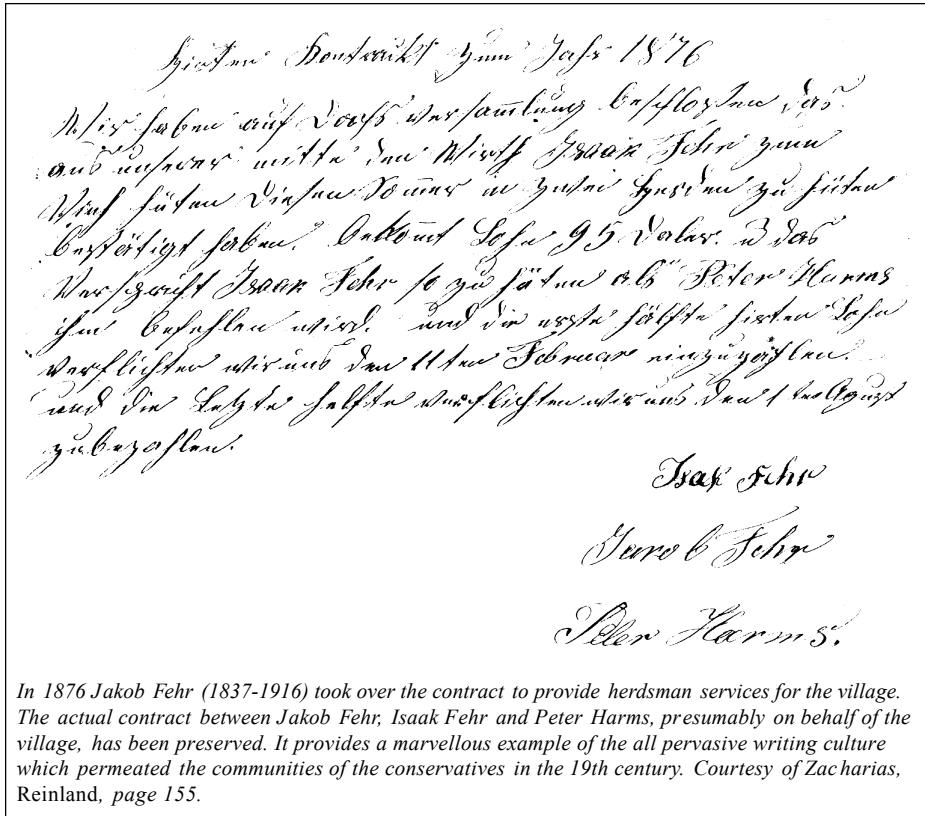 Hirten Kontrackt zum Jahr 1876
Wir haben auf Dorfs versammlung beschloszen das
aus unserer mitte den Wirth Isaak Fehr zum
Vieh hüten diesen Sommer in zwei Herden zu hüten
bestätigt haben. Bekomt Lohn 95 Daler. u das
Verspricht Isaak Fehr so zu hüten als Peter Harms
ihm befehlen wird. und die erste hälfte hirten Lohn
verflichten wir uns den 11ten Februar einzuzahlen.
und die Letzte helfte verflichten wir uns den 1 ten Agust
zubezahlen.
Isak Fehr
Jacob Fehr
Peter Harms.
In 1876 Jakob Fehr (1837-1916) took over the contract to provide herdsman services for the village.
The actual contract between Jakob Fehr, Isaak Fehr and Peter Harms, presumably on behalf of the
village, has been preserved. It provides a marvellous example of the all pervasive writing culture
which permeated the communities of the conservatives in the 19th century. Courtesy of Zacharias,
Reinland, page 155.